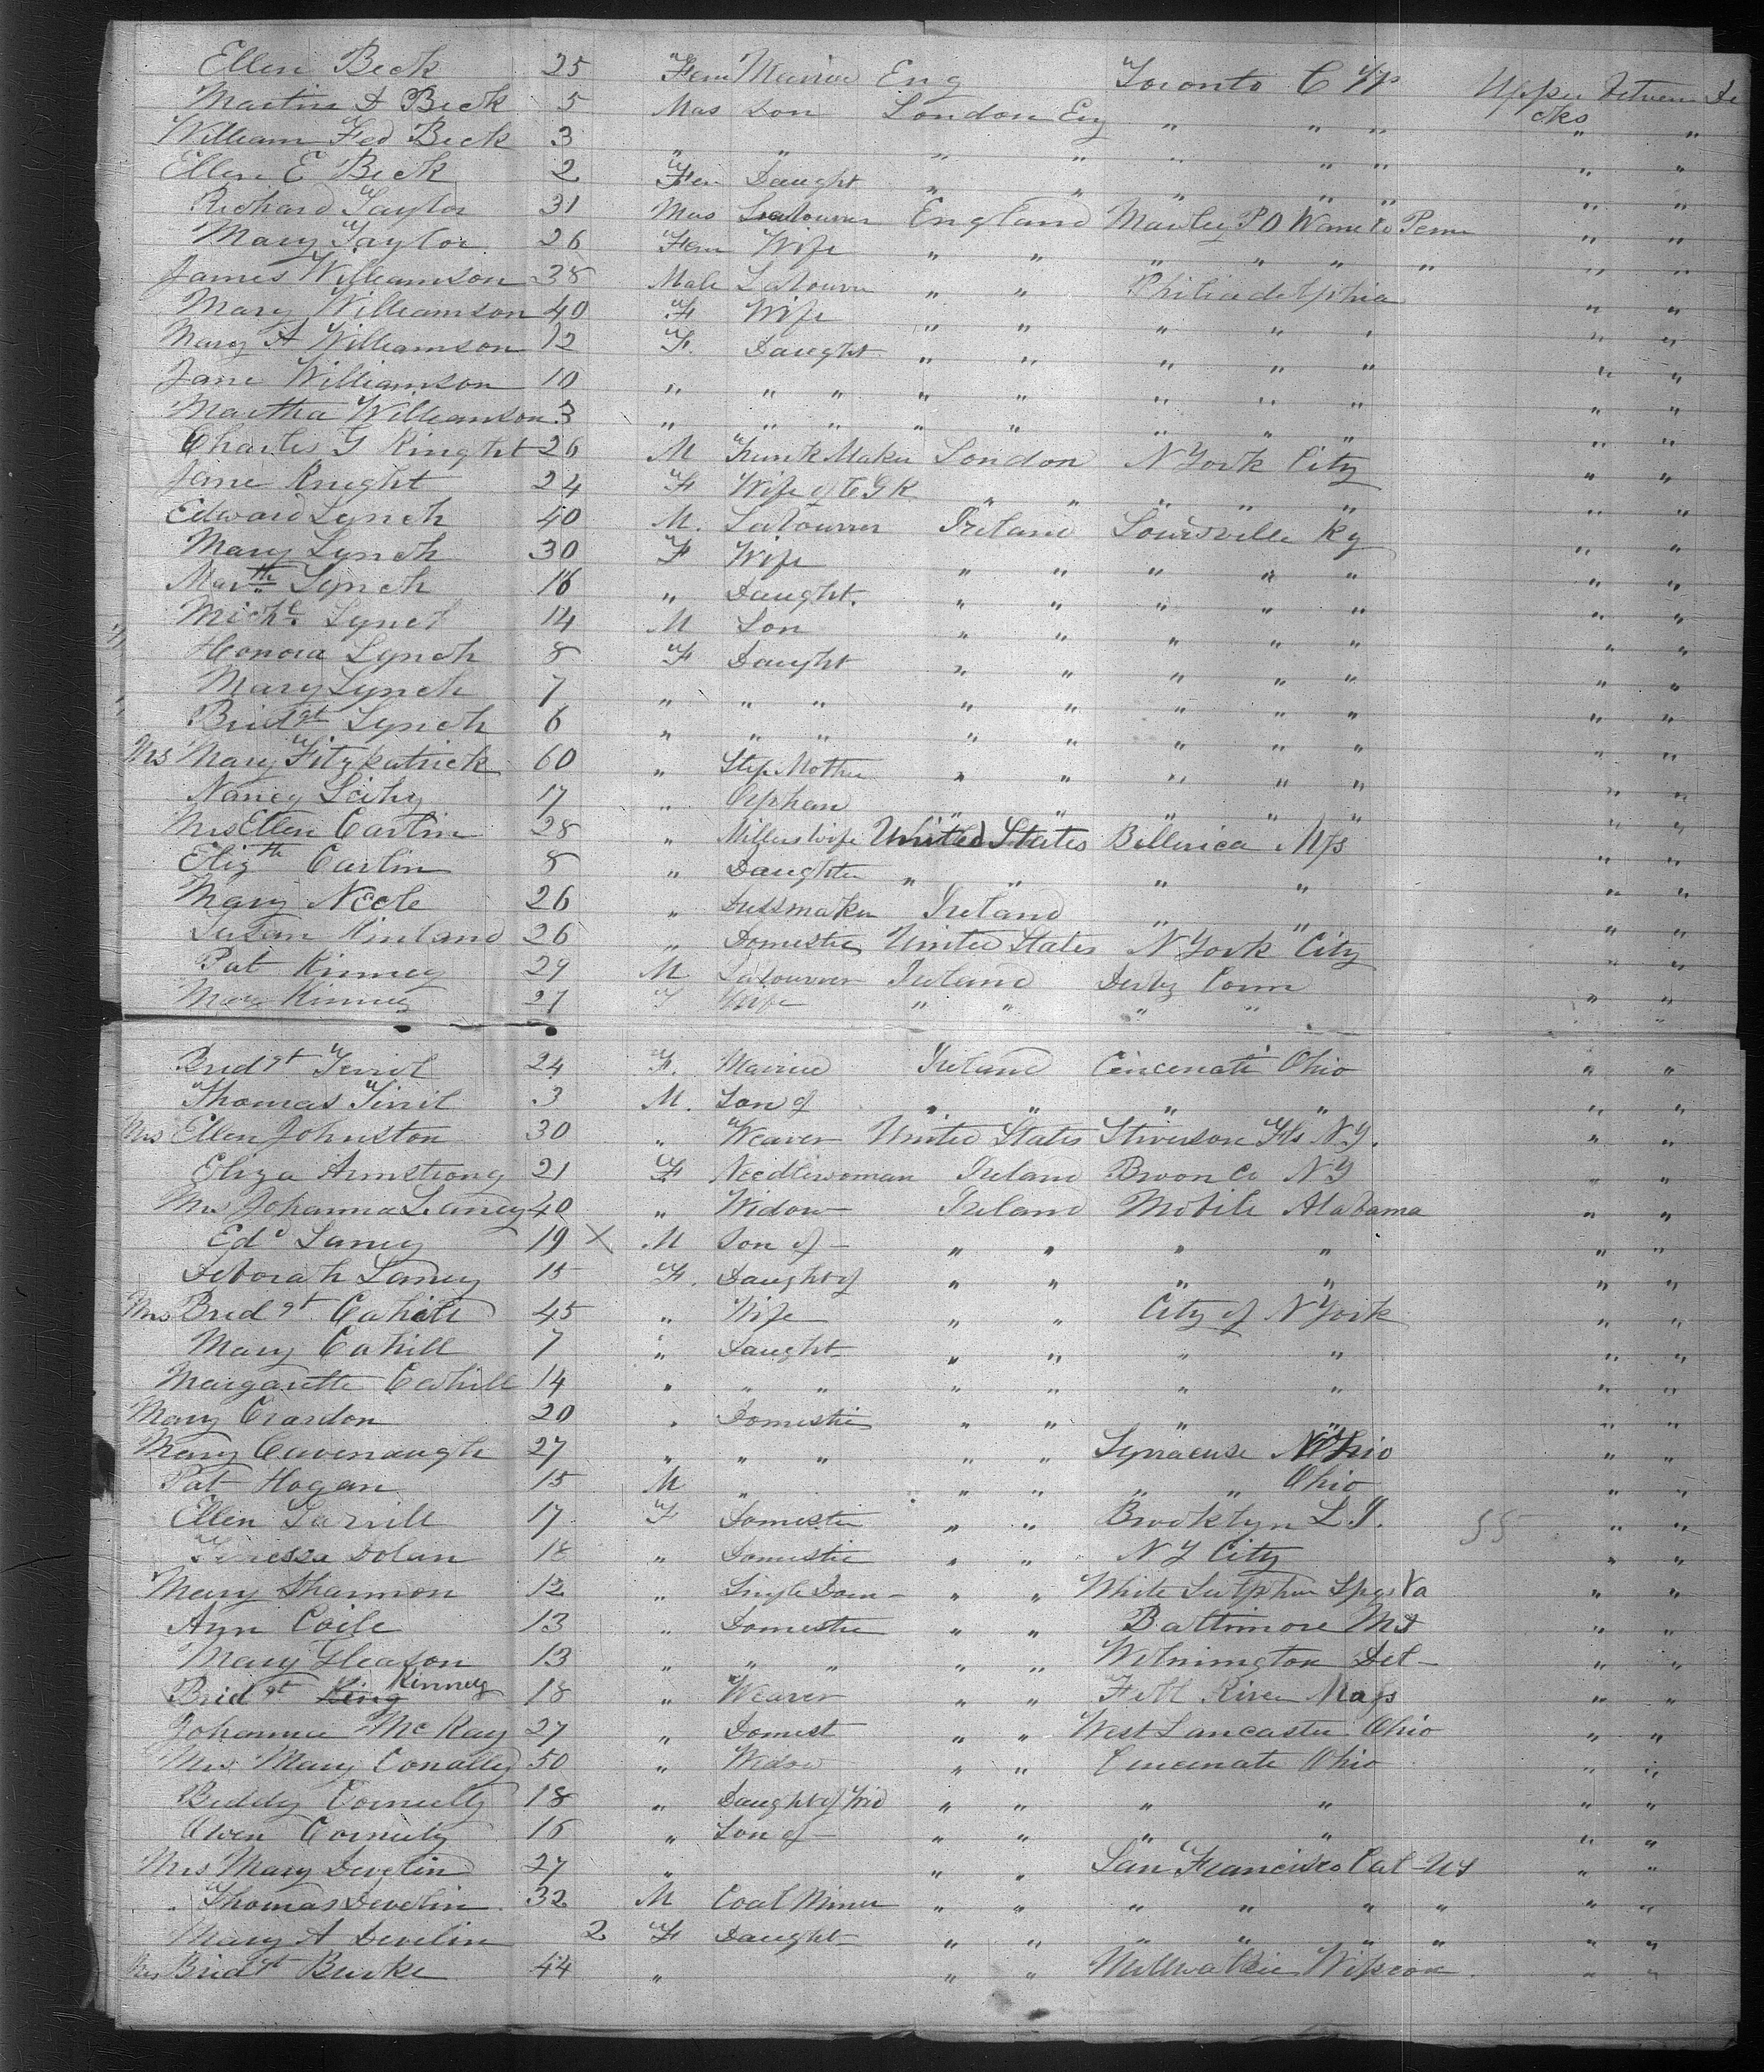 Ellen Beck 25 Fem Married Eng Toronto C W Upper Between De
Martin D Beck 5 Mas Son London Eng " " " cks " "
William Fed Beck 3 " " " " " " " " "
Ellen E Beck 2 Fem Daught " " " " " " "
Richard Taylor 31 Mas Labourer England Mawley P O Wane Co Penn " "
Mary Taylor 26 Fem Wife " " " " " " " "
James Williamson 38 Male Labourer " " Philiadelphia " "
Mary Williamson 40 F Wife " " " " " " "
Mary A Williamson 12 F. Daught " " " " " " "
Jane Williamson 10 " " " " " " " " " "
Martha Williamson 3 " " " " " " " " " "
Charles G Kinght 26 M Trunk Maker London N York City " "
Jane Knight 24 F Wife of C G K " " " " " " "
Edward Lynch 40 M. Labourer Ireland Louisville Ky " "
Mary Lynch 30 F Wife " " " " " " "
Mar th Lynch 16 " Daught. " " " " " " "
Mich l Lynch 14 M Son " " " " " " "
Honora Lynch 8 F Daught " " " " " " "
Mary Lynch 7 " " " " " " " " " "
Brid gt Lynch 6 " " " " " " " " " "
Mrs Mary Fitzpatrick 60 " Step Mother " " " " " " "
Nancy Leihy 17 " Orphan " " " " " " "
Mrs Ellen Carlin 28 " Millers Wife United States Billerica Mfs " "
Eliz th Carlin 8 " Daughter " " " " " "
Mary Neele 26 " Dressmaker Ireland " " " "
Susan Kinland 26 " Domestic United States N York City " "
Pat Kinney 29 M Labourer Ireland Derby Conn " "
Mary Kinney 27 F Wife " " " " " "
Brid gt Tinil 24 F. Married Ireland Cincenati Ohio " "
Thomas Tinil 3 M. Son of " " " " " "
Mrs Ellen Johnston 30 " Weaver United States Stiverson Fls N Y. " "
Eliza Armstrong 21 F Needlewoman Ireland Broon Co N Y " "
Mrs Johanna Laney 40 " Widow Ireland Mobile Alabama " "
Ed d Laney 19 X M Son of " " " " " "
Deborah Laney 15 F. Daught of " " " " " "
Mrs Brid gt Cahill 45 " Wife " " City of N York " "
Mary Cahill 7 " Daught " " " " " "
Margarette Cahill 14 " " " " " " " " "
Mary Crardon 20 " Domestic " " " " " "
Mary Cavenaugh 27 " " " " " Syracuse Ohio " "
Pat Hogan 15 M " " " " " Ohio " "
Ellen Farrill 17 F Domestic " " Brooklyn L I. 55 " "
Teressa Dolan 18 " Domestic " " N Y City " "
Mary Shannon 12 " Single Dom " " White Sulphur Spgs Va " "
Ann Coile 13 " Domestic " " Baltimore Md " "
Mary Gleason 13 " " " " " Wilmington Del " "
Brid gt King Kinney 18 " Weaver " " Fall River Mass " "
Johanna McKay 27 " Domest " " West Lancaster Ohio " "
Mrs Mary Conally 50 " Widow " " Cincenate Ohio " "
Biddy Connelly 18 " Daught of Wid " " " " " "
Owen Connely 16 " Son of " " " " " "
Mrs Mary Develin 27 " " " San Francisco Cal US " "
" Thomas Develin 32 M Coal Miner " " " " " " " "
Mary A Develin 2 F Daught " " " " " " " "
Mrs Brid gt Burke 44 " " " Millwalkie Wiscon " "